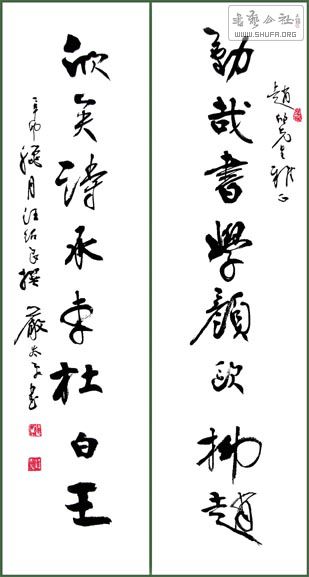 書藝公社
WWW.SHUFA.ORG
趙先生雅正
勤哉書學顏歐柳趙
欣矣詩承李杜白王
辛卯臘月汪紹良撰
嚴太平書